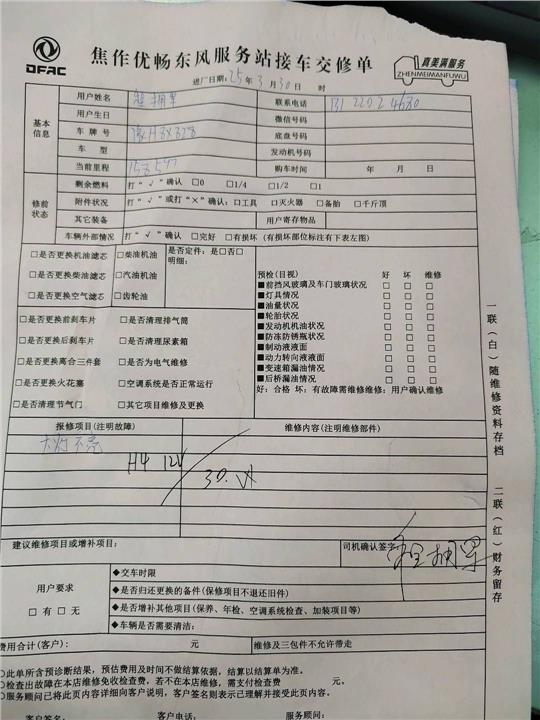 DFAC
焦作优畅东风服务站接车交修单
真美满服务
ZHENMEIMANFUWU
进厂日期：25年3月30日 时
基本信息
用户姓名 联系电话
用户生日 微信号码
车牌号 豫H8X328 底盘号码
车型 发动机号码
当前里程 购车时间 年 月 日
修前状态
剩余燃料 打“√”确认 □0 □1/4 □1/2 □1
附件状况 打“√”或打“×”确认：□工具 □灭火器 □备胎 □千斤顶
其它装备 用户寄存物品
车辆外部情况 打“√”确认 □完好 □有损坏（有损坏部位标注有下表左图）
□是否更换机油滤芯 □柴油机油 是否定件：是□否□
明细：
□是否更换柴油滤芯 □汽油机油
□是否更换空气滤芯 □齿轮油
□是否更换前刹车片 □是否清理排气筒
□是否更换后刹车片 □是否清理尿素箱
□是否更换离合三件套 □是否为电气维修
□是否更换火花塞 □空调系统是否正常运行
□是否清理节气门 □其它项目维修及更换
预检(目视) 好 坏 维修
■前挡风玻璃及车门玻璃状况 □ □ □
■灯具情况 □ □ □
■油量状况 □ □ □
■轮胎状况 □ □ □
■发动机机油状况 □ □ □
■防冻防锈瓶状况 □ □ □
■制动液液面 □ □ □
■动力转向液液面 □ □ □
■变速箱漏油情况 □ □ □
■后桥漏油情况 □ □ □
好：合格 坏：有故障需维修维修：用户确认维修
报修项目(注明故障) 维修内容(注明维修部件)
大灯不亮
H4 12V
建议维修项目或增补项目： 司机确认签字
用户要求
□有 □无
◆交车时限
◆是否归还更换的备件(保修项目不退还旧件)
◆是否增补其他项目(保养、年检、空调系统检查、加装项目等)
◆车辆是否需要清洁：
费用合计(客户)： 元 维修及三包件不允许带走
○此单所含预诊断结果，预估费用及时间不做结算依据，结算以结算单为准。
○检查出故障在本店维修免收检查费，若不在本店维修，需支付检查费 元。
○服务顾问已将此页内容详细向客户说明，客户签名则表示已理解并接受此页内容。
客户签名： 客户电话： 服务顾问：
一联（白）随维修资料存档
二联（红）财务留存